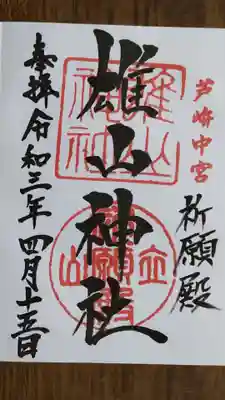 芦峅中宮
祈願殿
雄山神社
奉拝 令和三年四月十五日